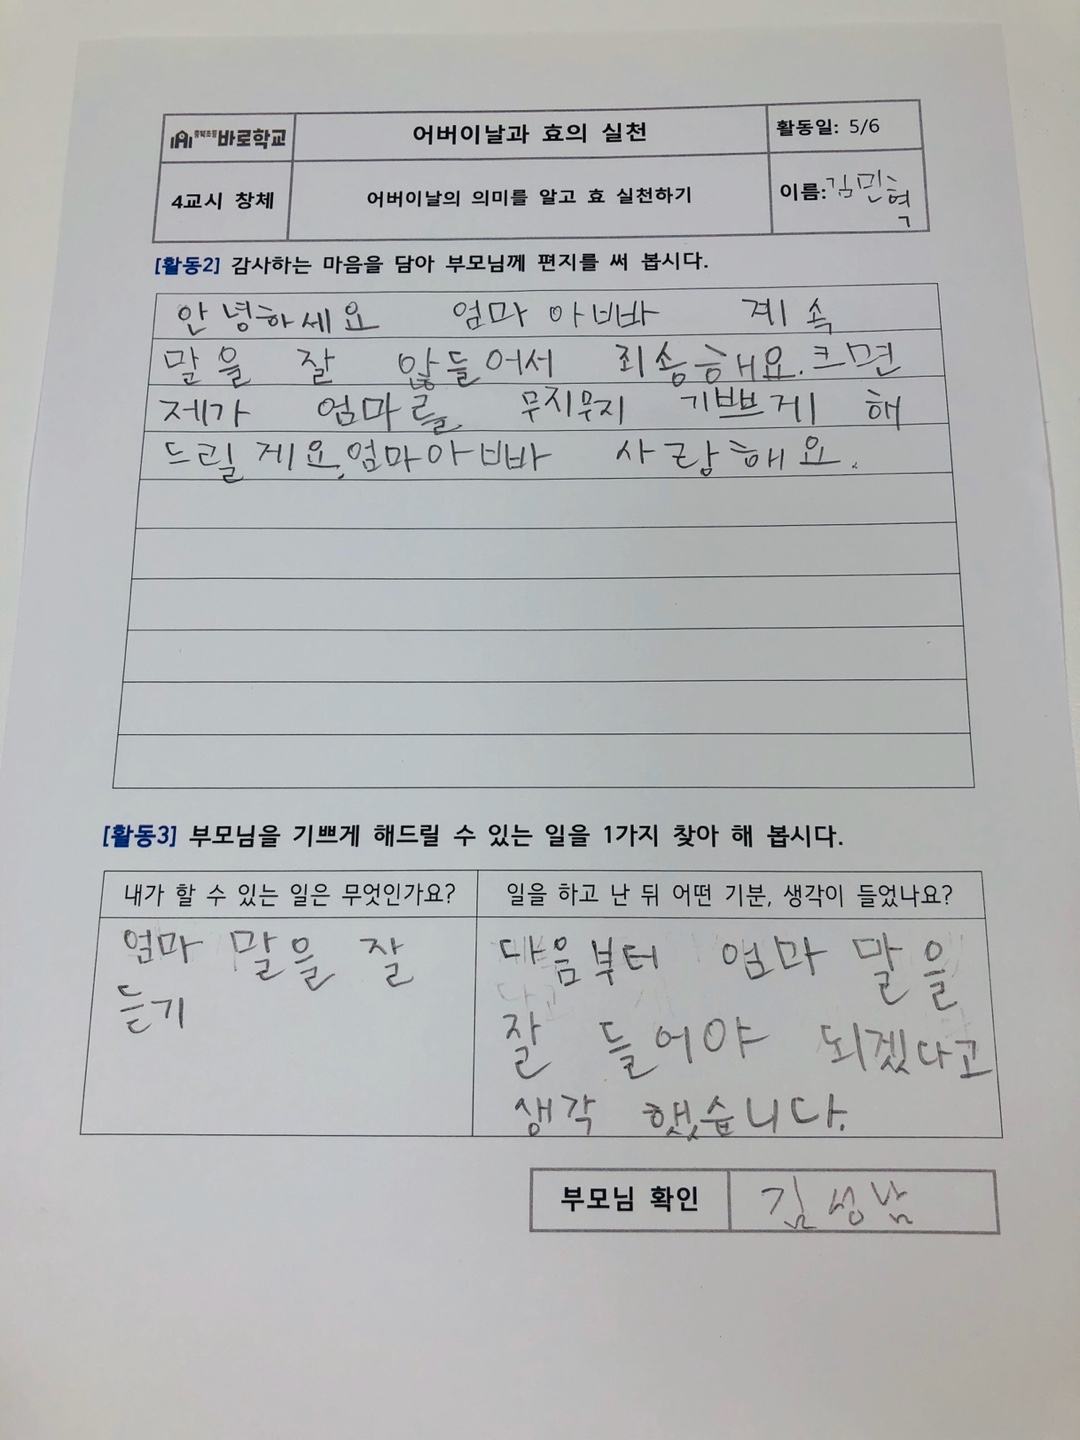 충북초등 바로학교
어버이날과 효의 실천
활동일: 5/6
4교시 창체
어버이날의 의미를 알고 효 실천하기
이름:김민혁
[활동2] 감사하는 마음을 담아 부모님께 편지를 써 봅시다.
안녕하세요 엄마 아빠 계속
말을 잘 않들어서 죄송해요.크면
제가 엄마를 무지무지 기쁘게 해
드릴게요.엄마아빠 사랑해요.
[활동3] 부모님을 기쁘게 해드릴 수 있는 일을 1가지 찾아 해 봅시다.
내가 할 수 있는 일은 무엇인가요?
일을 하고 난 뒤 어떤 기분, 생각이 들었나요?
엄마 말을 잘
듣기
다음부터 엄마 말을
잘 들어야 되겠다고
생각 했습니다.
부모님 확인
김성남